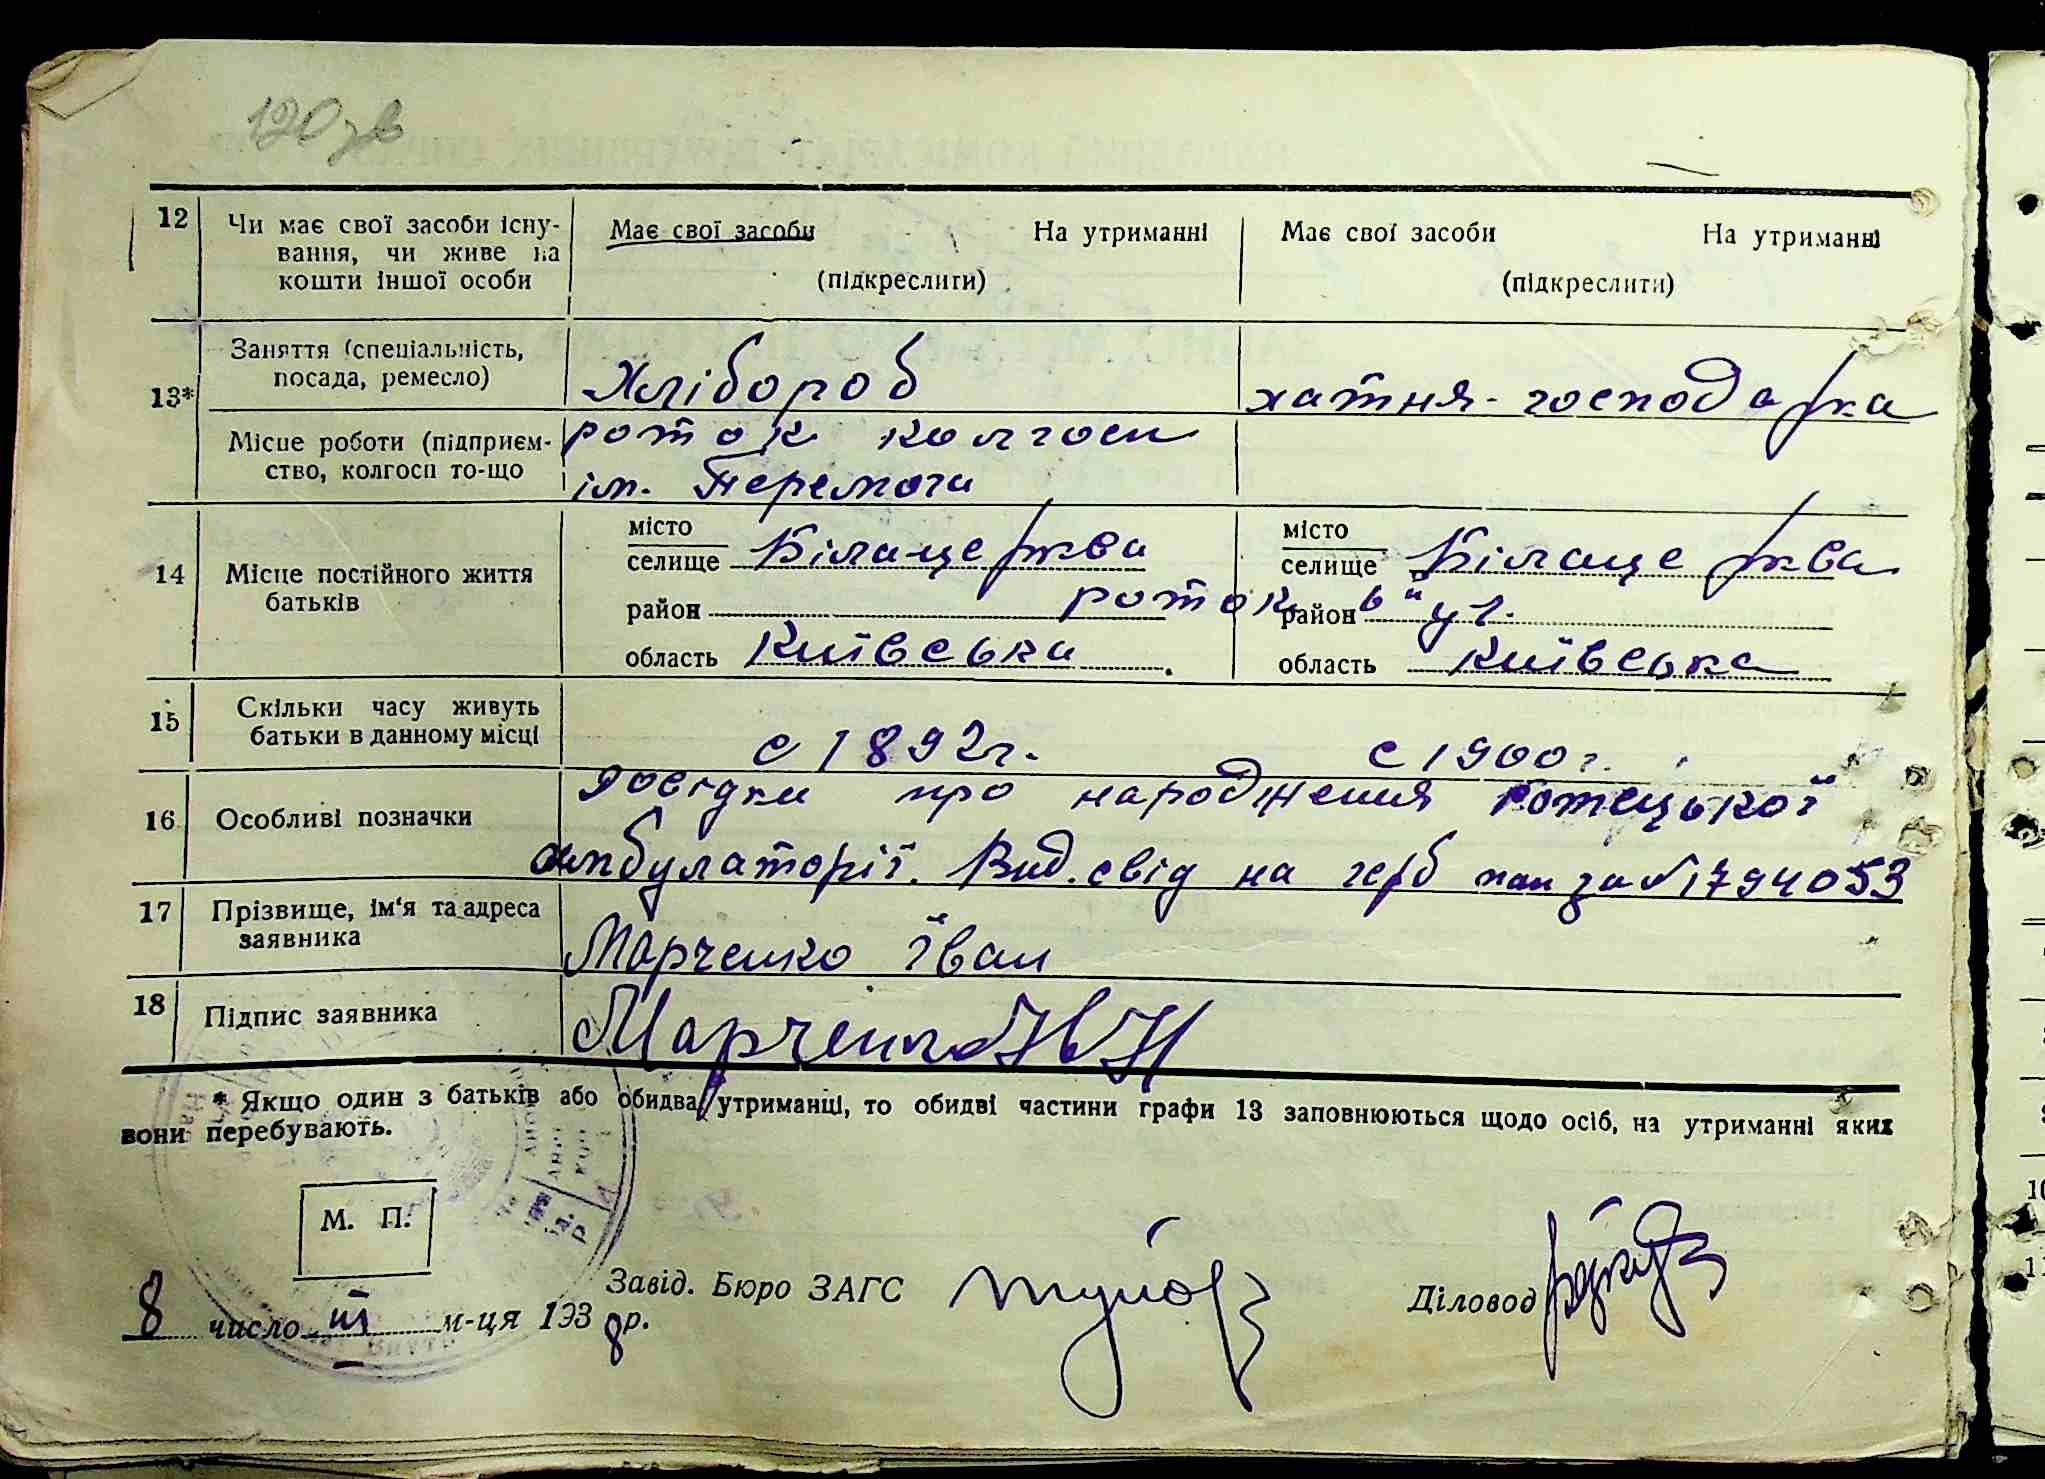 120 зв
12 Чи має свої засоби існу- Має свої засоби На утриманні Має свої засоби На утриманні
вання, чи живе на
кошти іншої особи (підкреслити) (підкреслити)
Заняття (спеціальність,
посада, ремесло) Хлібороб хатня-господарка
13*
Місце роботи (підприєм- роток колгосп
ство, колгосп то-що ім. Перемоги
місто місто
селище Білацерква селище Білацерква
14 Місце постійного життя
батьків район роток район 6й ул.
область Київська область Київська
15 Скільки часу живуть
батьки в данному місці с 1892 г. с 1900 г.
довідки про народження Ротецької
16 Особливі позначки
амбулаторії. Вид. свід на герб пап за № 1794053
17 Прізвище, ім‘я та адреса
заявника Марченко Іван
18 Підпис заявника Марченко
* Якщо один з батьків або обидва утриманці, то обидві частини графи 13 заповнюються щодо осіб, на утриманні яких
вони перебувають.
М. П.
Завід. Бюро ЗАГС Діловод
8 число III м-ця 1938 р.